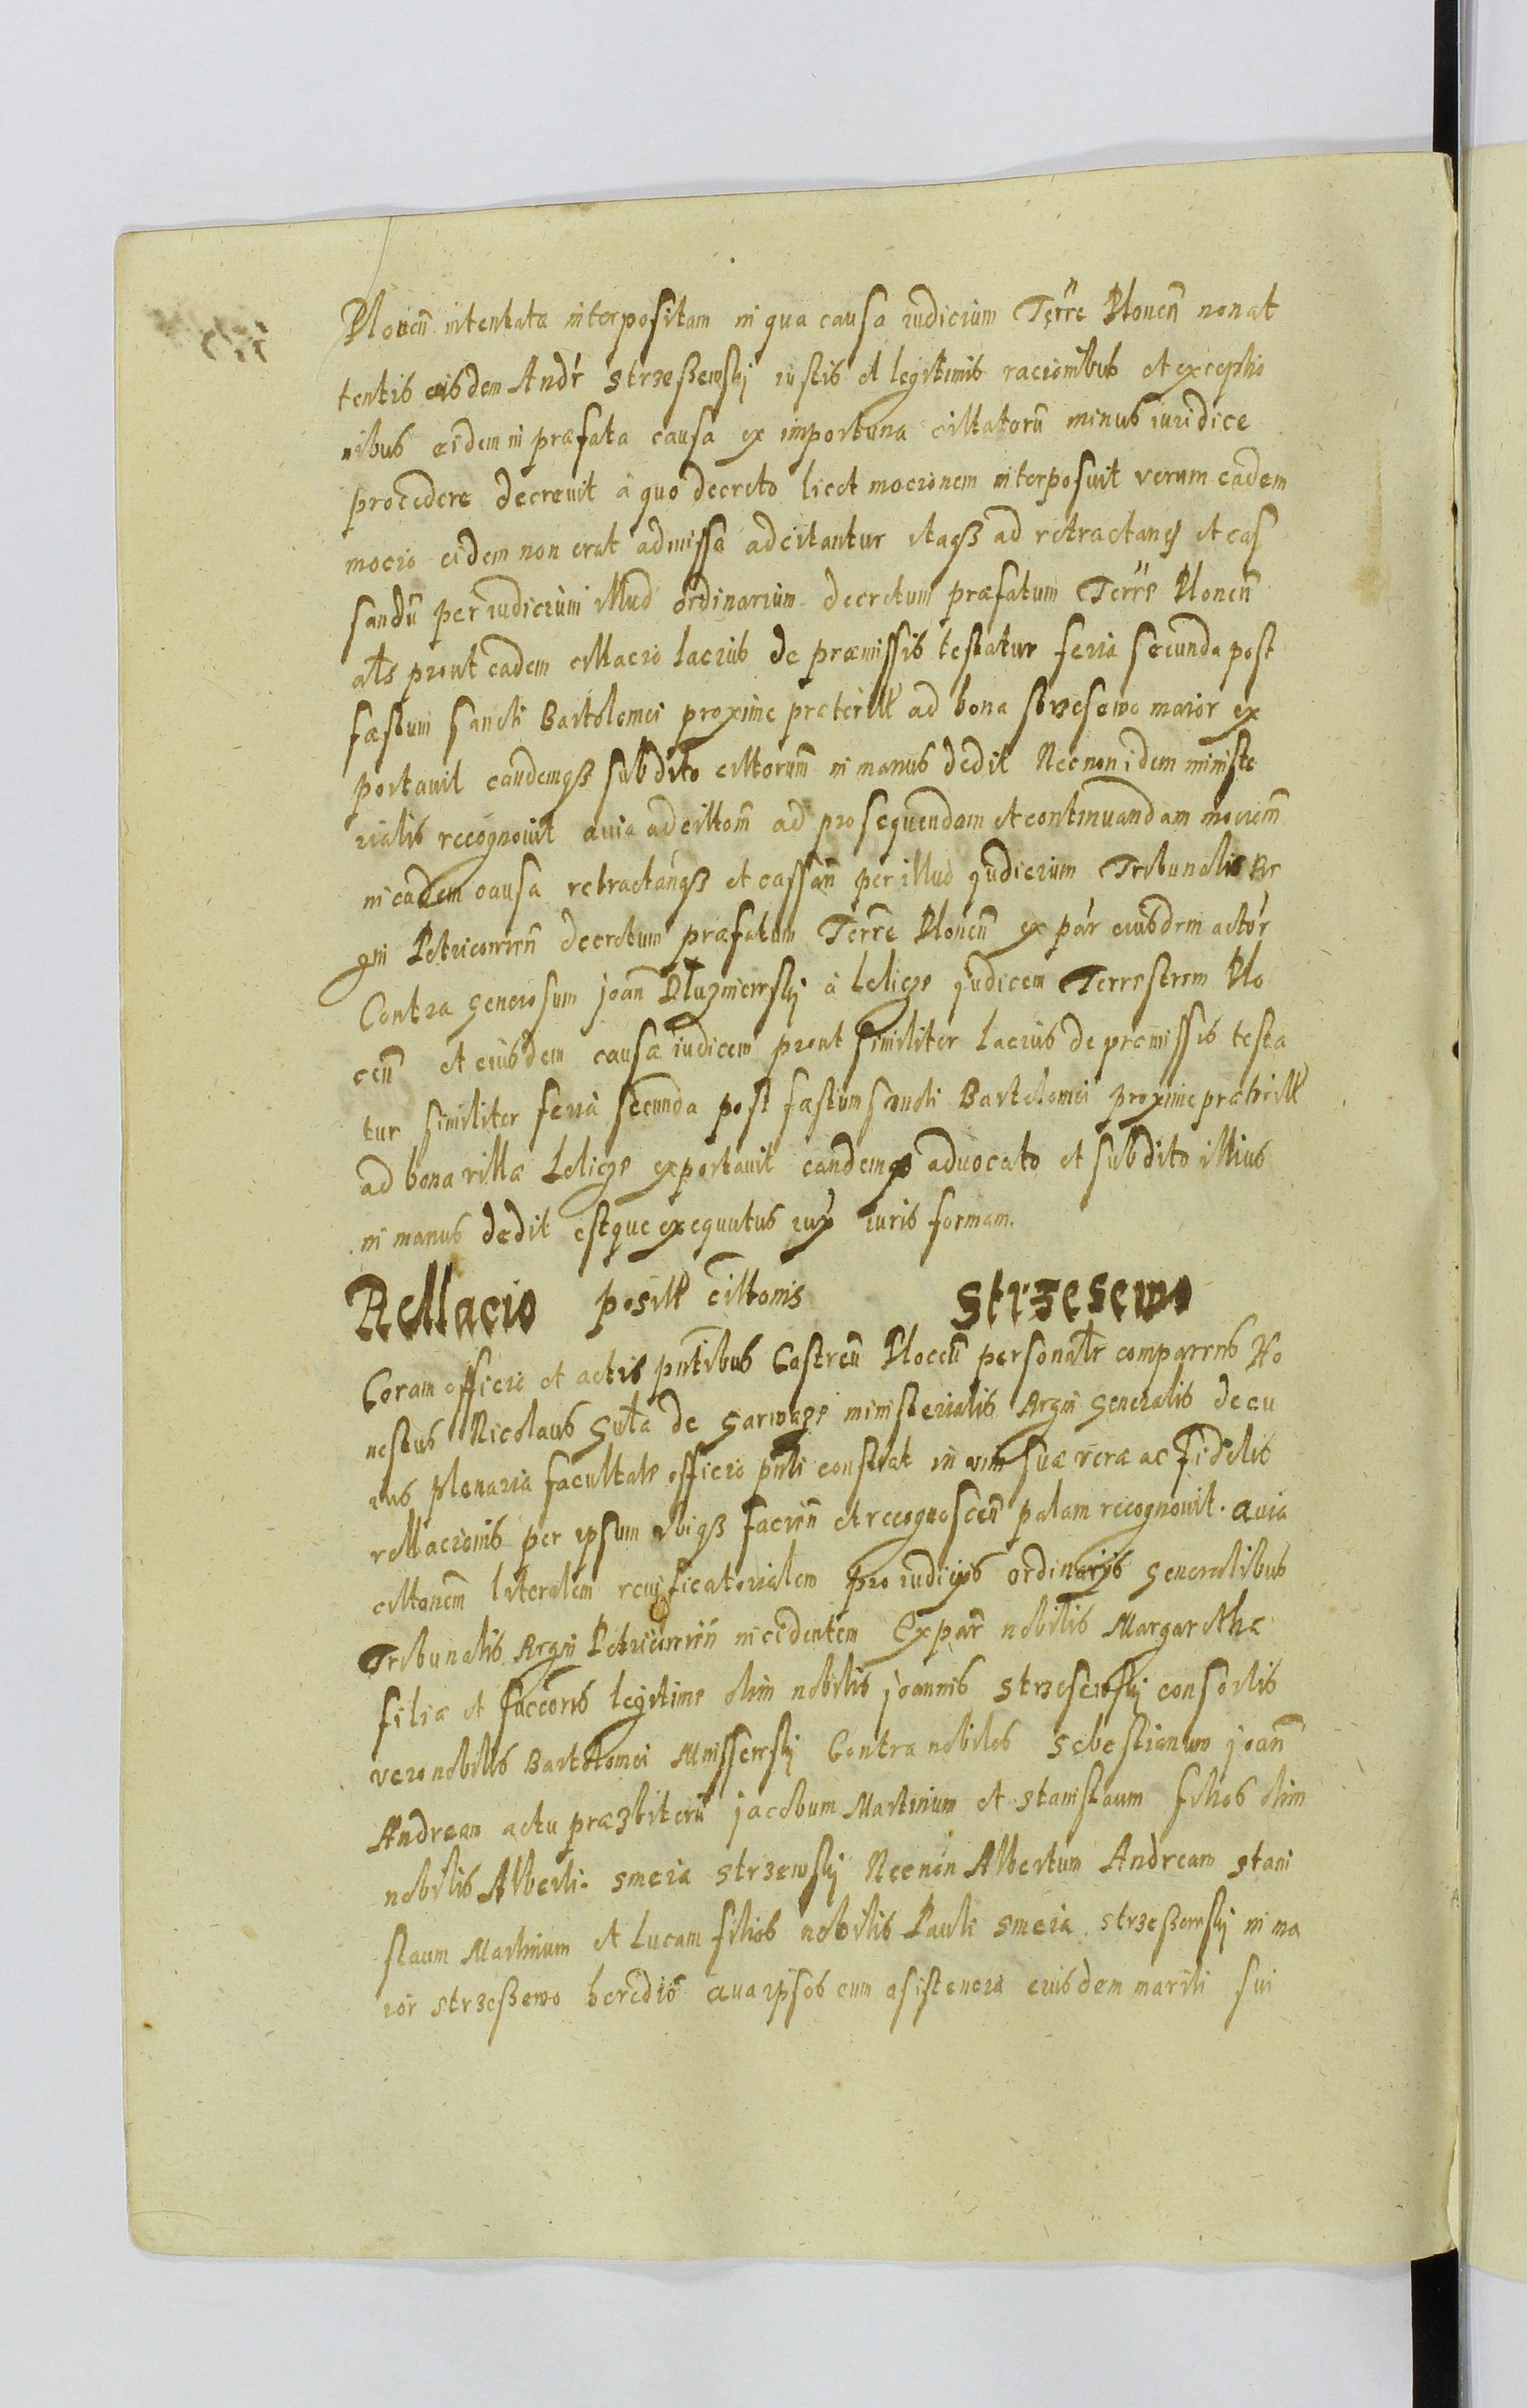 Plocen̄ intentata interpositam in qua causa iudicium Terre Plocen̄ non at
tentis eisdem Andr̄ Strzeßewskij iustis et legitimis racionibus et exceptio
nibus eidem in præfata causa ex importuna cittatorū minus iuridice
procedere decrevit à quo decreto licet mocionem interposuit verum eadem
mocio eidem non erat admissa adcitantur itaqß ad retractanḡ et cas
sandū per iudicium illud ordinarium decretum præfatum Terre Plocen̄
als prout eadem cittacio lacius de præmissis testatur feria secunda post
fæstum sancti Bartolomei proxime preteritt ad bona strzesewo maior ex
portavit eandemqß subdito cittorum in manus dedit Necnon idem ministe
rialis recognovit quia adcittom̄ ad prosequendam et continuandam mociem̄
in eadem causa retractanqß et cassan̄ per illud judicium Tribunalis Re
gni Petricovien̄ decretum præfatum Terre Plocen̄ ex par̄ eiusdem actor̄
Contra generosum joan̄ Dłuzniewskij à Lelicze judicem Terrestrem Plo
cen̄ et eiusdem causæ iudicem prout similiter lacius de premissis testa
tur similiter feria secunda post fæstum sancti Bartolomei proxime preteritt
ad bona villæ Lelicze exportavit eandemqß advocato et subdito illius
in manus dedit estque exequutus iux̄ iuris formam.
Rellacio positt cittonis Strzesewo
Coram officio et actis pn̄tibus Castren̄ Plocen̄ personalr̄ comparens Ho
nestus Nicolaus Guta de Garwaze ministerialis Regni Generalis de cu
ius plenaria facultate officio pn̄ti constat in vim suæ veræ ac fidelis
rellacionis per ipsum ubiqß facien̄ et recognoscen̄ palam recognovit. quia
cittonem̄ literalem reuificatorialem pro iudicijs ordinarijs generalibus
Tribunalis Regni Petricovien̄ incidentem Ex par̄ nobilis Margarethe
filiæ et succoris legitime olim nobilis joannis Strzesewskij consortis
vero nobilis Bartolomei Mnissewskij Contra nobiles Sebestianum joan̄
Andream actu præzbiterū jacobum Martinum et Stanislaum filios olim
nobilis Alberti Smeia Strzewskij Necnon Albertum Andream Stani
slaum Martinum et Lucam filios nobilis Pauli Smeia Strzeßewskij in ma
ior Strzeßewo heredes qua ipsos cum asistencia eiusdem mariti sui